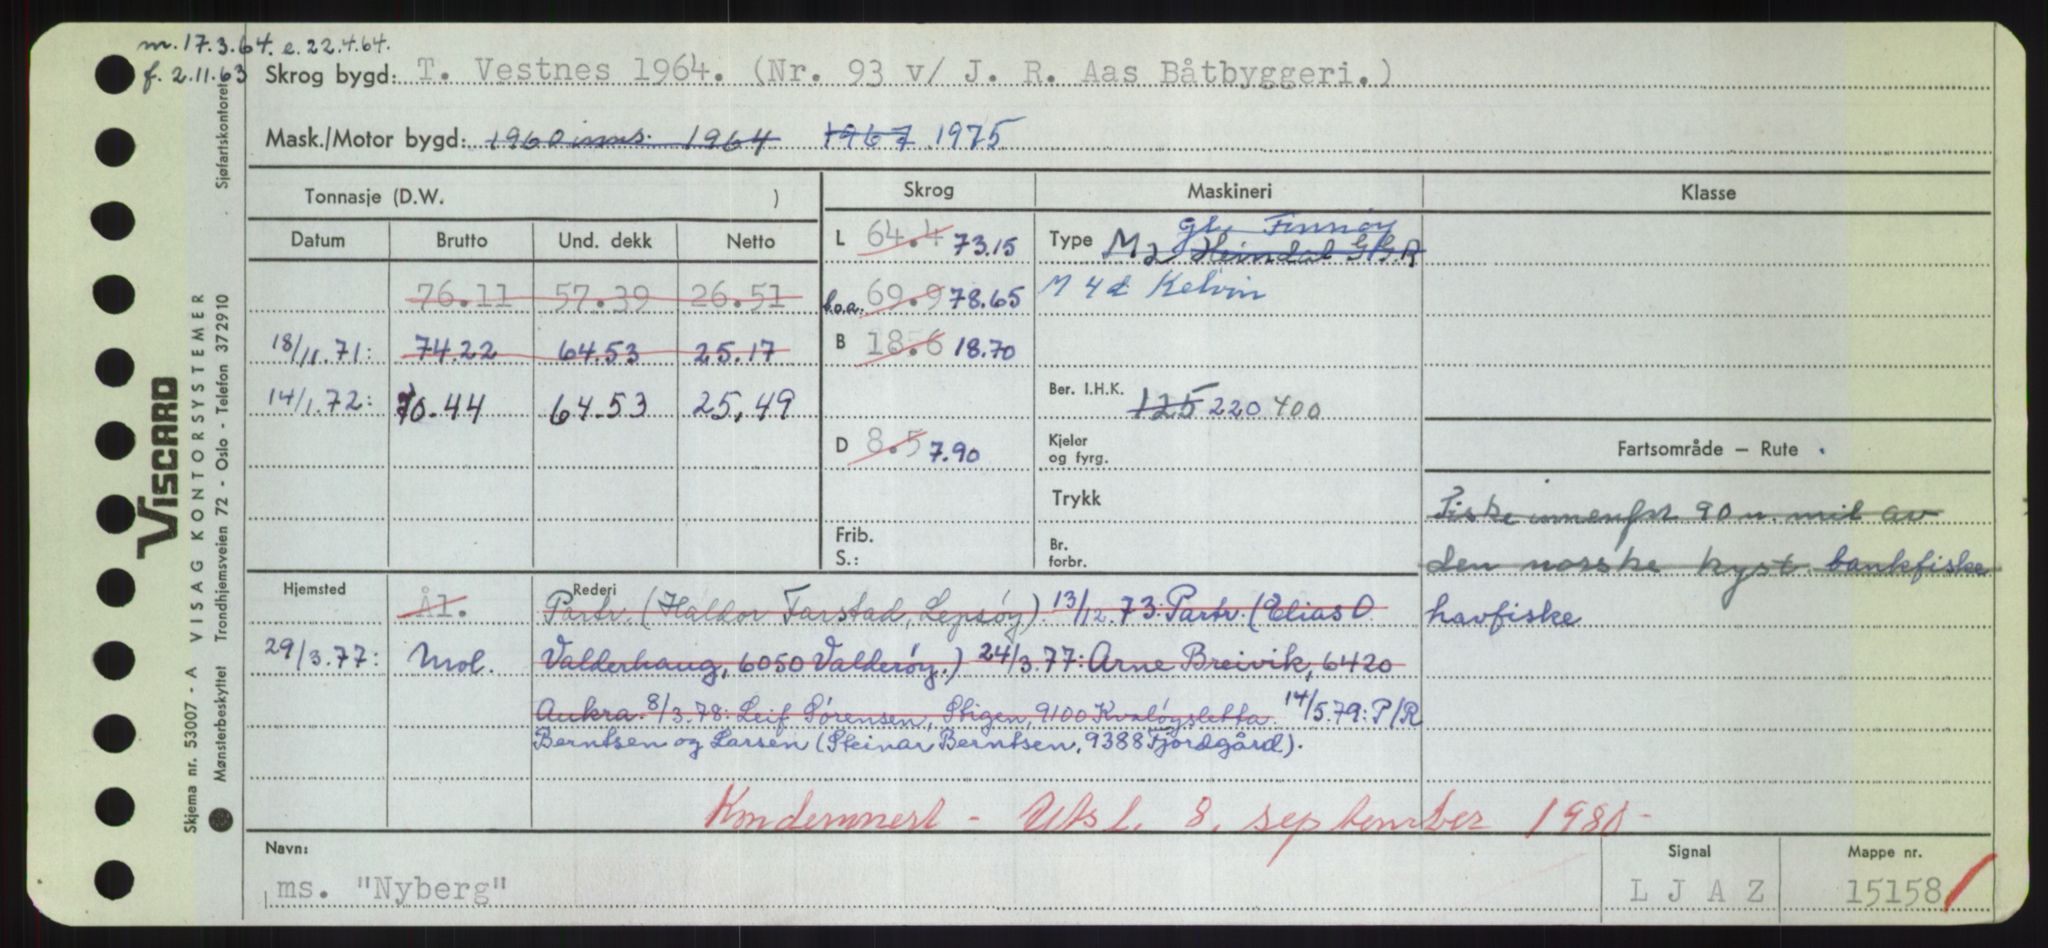 m. 17.3.64. e. 22.4.64.
f. 2.11.63
Skrog bygd: T. Vestnes 1964. (Nr. 93 v/ J. R. Aas Båtbyggeri.)
Mask./Motor bygd: 1960 inns. 1964 1967 1975
Tonnasje (D.W. )
Skrog Maskineri Klasse
Datum Brutto Und. dekk Netto
L 64.4 73.15
Type M 2 Heimdal G.G.R
gl. Finnøy
76.11 57.39 26.51
l.o.a. 69.9 78.65
M 4 d Kelvin
18/11.71: 74.22 64.53 25.17
B 18.6 18.70
14/1.72: 70.44 64.53 25,49
Ber. I.H.K. 125 220 400
D 8.5 7.90
Kjeler og fyrg.
Fartsområde – Rute
Trykk
Fiske innenfor 90 n. mil av
Frib.
S.:
Br. forbr.
den norske kyst. bankfiske
havfiske
Hjemsted Rederi
Ål. Partr. (Halkor Farstad, Lepsøy) 13/12.73: Partr. (Elias O.
29/3.77: Mol. Valderhaug, 6050 Valderøy.) 24/3.77: Arne Breivik, 6420
Aukra. 8/3.78: Leif Sørensen, Stigen, 9100 Kvaløysletta. 14/5.79: P/R
Berntsen og Larsen (Steinar Berntsen, 9388 Fjordgård).
Kondemnert - Utsl. 8. september 1980-
Navn: Signal Mappe nr.
ms. "Nyberg" L J A Z 15158
VISCARD
Skjema nr. 53007 - A VISAG KONTORSYSTEMER
Mønsterbeskyttet Trondhjemsveien 72 - Oslo - Telefon 372910 . Sjøfartskontoret